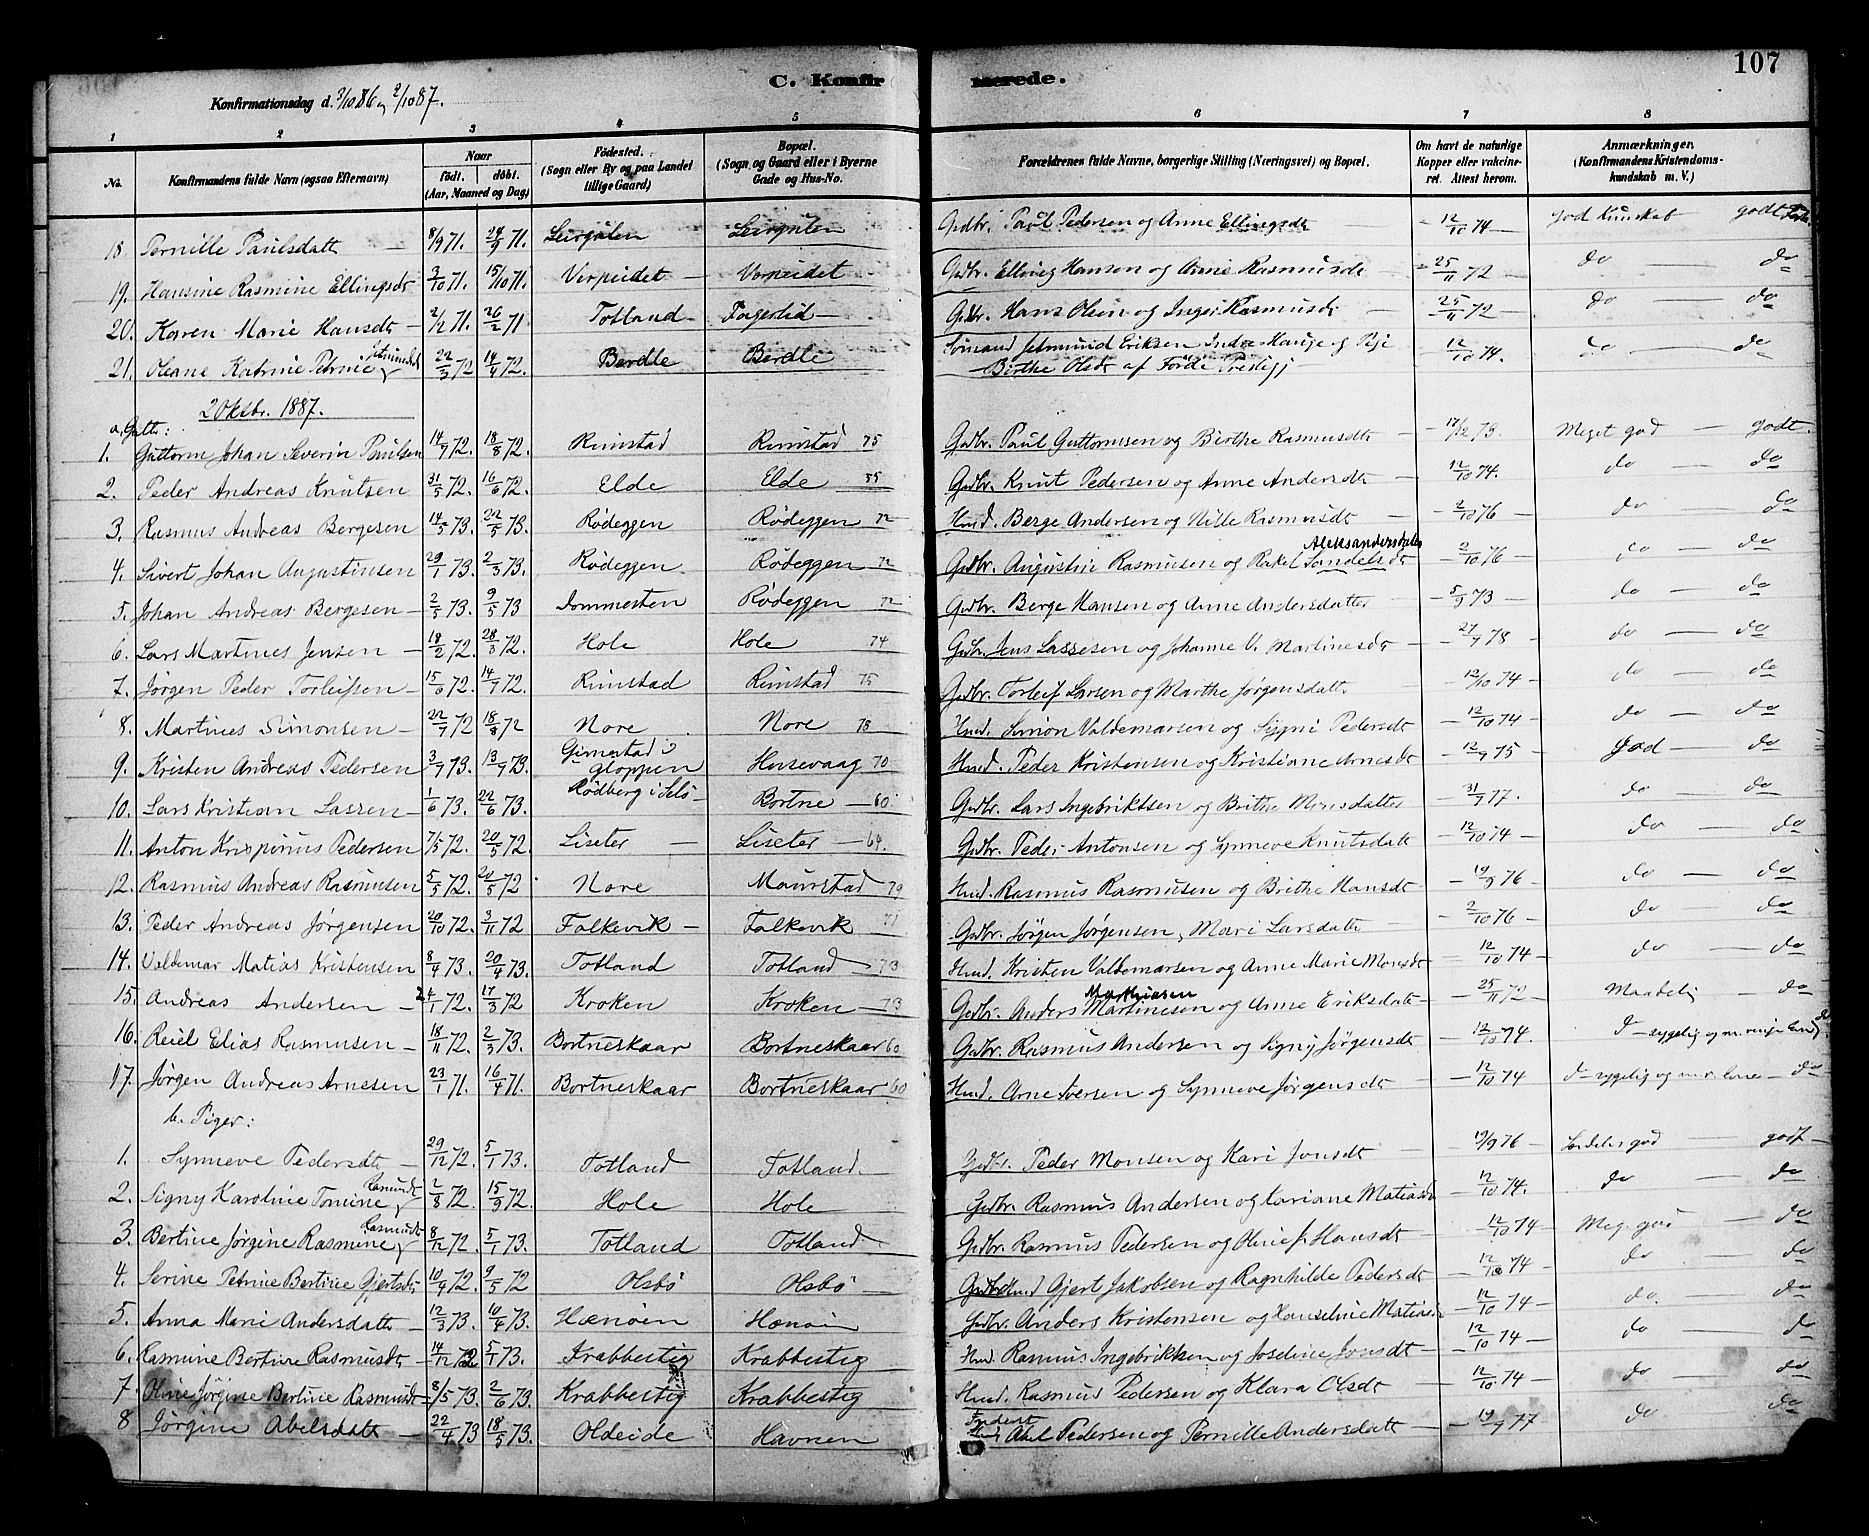 107
C. Konfirmerede.
Konfirmationsdag d. 3/10 86 og 2/10 87.
1 2 3 4 5 6 7 8
No. Konfirmandens fulde Navn (ogsaa Efternavn) Naar født. døbt. (Aar, Maaned og Dag) Fødested. (Sogn eller By og paa Landet tillige Gaard) Bopæl. (Sogn og Gaard eller i Byerne Gade og Hus-No. Forældrenes fulde Navne, borgerlige Stilling (Næringsvei) og Bopæl. Om havt de naturlige Kopper eller vakcineret. Attest herom. Anmærkninger. (Konfirmandens Kristendomskundskab m. V.)
18. Pernille Paulsdatt 8/9 71. 24/9 71. Leirgulen Leirgulen Gdbr. Paul Pedersen og Anne Ellingsdt 12/10 74 god Kunskab godt
19. Hansine Rasmine Ellingsdt 3/10 71. 15/10 71. Verpeidet Verpeidet Gdbr. Elling Hansen og Anne Rasmusdt 25/11 72 do do
20. Karen Marie Hansdt 2/2 71. 26/2 71 Totland Fagerlid Gdbr. Hans Olsen og Inger Rasmusdt 25/11 72 do do
21. Oleane Katrine Petrine 22/3 72 14/4 72. Berdle Berdle Sømand Jetmund Eriksen Indre Hauge og Pige Birthe Olsdt af Førde Prestgj 12/10 74. do do
2 Oktbr. 1887.
a, Gutter:
1. Guttorm Johan Severin Paulsen 14/7 72. 18/8 72. Rimstad Rimstad 75 Gdbr. Paul Guttormsen og Birthe Rasmusdt 17/12 73. Meget god godt.
2. Peder Andreas Knutsen 31/5 72. 16/6 72. Elde Elde 55 Gdbr. Knut Pedersen og Anne Andersdt 12/10 74. do do
3. Rasmus Andreas Bergesen 14/5 73. 22/5 73. Rødeggen Rødeggen 72 Husd. Berge Andersen og Nille Rasmusdt 2/10 76 do do
4. Sivert Johan Augustinsen 29/1 73. 2/3 73. Rødeggen Rødeggen 72 Gdbr. Augustin Rasmusen og Rakel Sandelsdt Aleksandersdatter 2/10 76 do do
5. Johan Andreas Bergesen 2/5 73. 9/5 73 Dommesten Rødeggen 72 Gdbr. Berge Hansen og Anne Andersdatter 5/9 73 do do
6. Lars Martines Jensen 18/2 72. 28/3 72. Hole Hole 74 Gdbr. Jens Lassesen og Johanne V. Martinesdt 27/9 78 do do
7. Jørgen Peder Torleifsen 15/6 72. 14/7 72. Rimstad Rimstad 75 Gdbr. Torleif Larsen og Marthe Jørgensdatt. 12/10 74 do do
8. Martines Simonsen 22/7 72 18/8 72 Nore Nore 78 Husd. Simon Valdemarsen og Signi Pedersdt 12/10 74 do do
9. Kristen Andreas Pedersen 3/7 73. 13/7 73. Gimestad i Gloppen Husevaag 70 Husd. Peder Kristensen og Kristiane Arnesdt 12/9 75 God do
10. Lars Kristian Lassen 1/6 73. 22/6 73. Rødberg i Selø Bortne 60 Gdbr. Lars Ingebriktsen og Brithe Monsdatter 31/7 77. do do
11. Anton Krispinus Pedersen 7/5 72. 20/5 72. Liseter Liseter 64. Gdbr. Peder Antonsen og Synneve Knutsdatt 12/10 74 do do
12. Rasmus Andreas Rasmusen 5/5 72. 20/5 72 Nore Maurstad 79 Husd. Rasmus Rasmusen og Brithe Hansdt 19/9 76 do do
13. Peder Andreas Jørgensen 20/10 72. 3/11 72 Falkevik Falkevik 71 Gdbr. Jørgen Jørgensen, Mari Larsdatt 2/10 76 do do
14. Valdemar Matias Kristensen 8/4 73. 20/4 73. Totland Totland 73 Husd. Kristen Valdemarsen og Anne Marie Monsdt 12/10 74 do do
15. Andreas Andersen 24/1 72. 17/3 72 Kroken Kroken 73 Gdbr. Anders Martinesen Mathiasen og Anne Eriksdatt 25/11 72 Maadelig do
16. Reiel Elias Rasmusen 18/11 72. 2/3 73. Bortneskaar Bortneskaar 60 Gdbr. Rasmus Andersen og Signy Jørgensdt 12/10 74. d- sygelig og m. do
17. Jørgen Andreas Arnesen 23/1 71. 16/4 71. Bortneskaar Bortneskaar 60 Husd. Arne Iversen og Synneve Jørgensdt 12/10 74 d- sygelig og do
b. Piger:
1. Synneve Pedersdt 29/12 72. 5/1 73. Totland Totland Gdbr. Peder Monsen og Kari Jonsdt 19/9 76 Særdeles god godt
2. Signy Karoline Tomine Rasmusdt 2/8 72. 15/9 72. Hole Hole Gdbr. Rasmus Andersen og Kariane Matiasdt 12/10 74. do do
3. Bertine Jørgine Rasmine Rasmusdt 8/12 72. 5/1 73. Totland Totland Gdbr. Rasmus Pedersen og Oline J. Hansdt 12/10 74 Meg. god do
4. Serine Petrine Bertine Gjertsdt 10/4 72. 9/5 72 Olsbø Olsbø Husmd Gjert Jakobsen og Ragnhilde Pedersdt 12/10 74 do do
5. Anna Marie Andersdatt 12/3 73. 10/4 73. Hænøen Hænøen Gdbr. Anders Kristensen og Hanseline Matiasdt 12/10 74 do. do
6. Rasmine Bertine Rasmusdt 14/12 72 5/1 73. Krabbestig Krabbestig Husd. Rasmus Ingebriktsen og Joseline Jonsdt 12/10 74 do do
7. Oline Jørgine Bertine Rasmusdt 8/5 73. 2/6 73. Krabbestig Krabbestig Husd. Rasmus Pedersen og Klara Olsdt 12/10 74 do do
8 Jørgine Abelsdatt 22/4 73 18/5 73. Oldeide Havnen Inderst Abel Pedersen og Pernille Andersdatt 19/9 77 do do